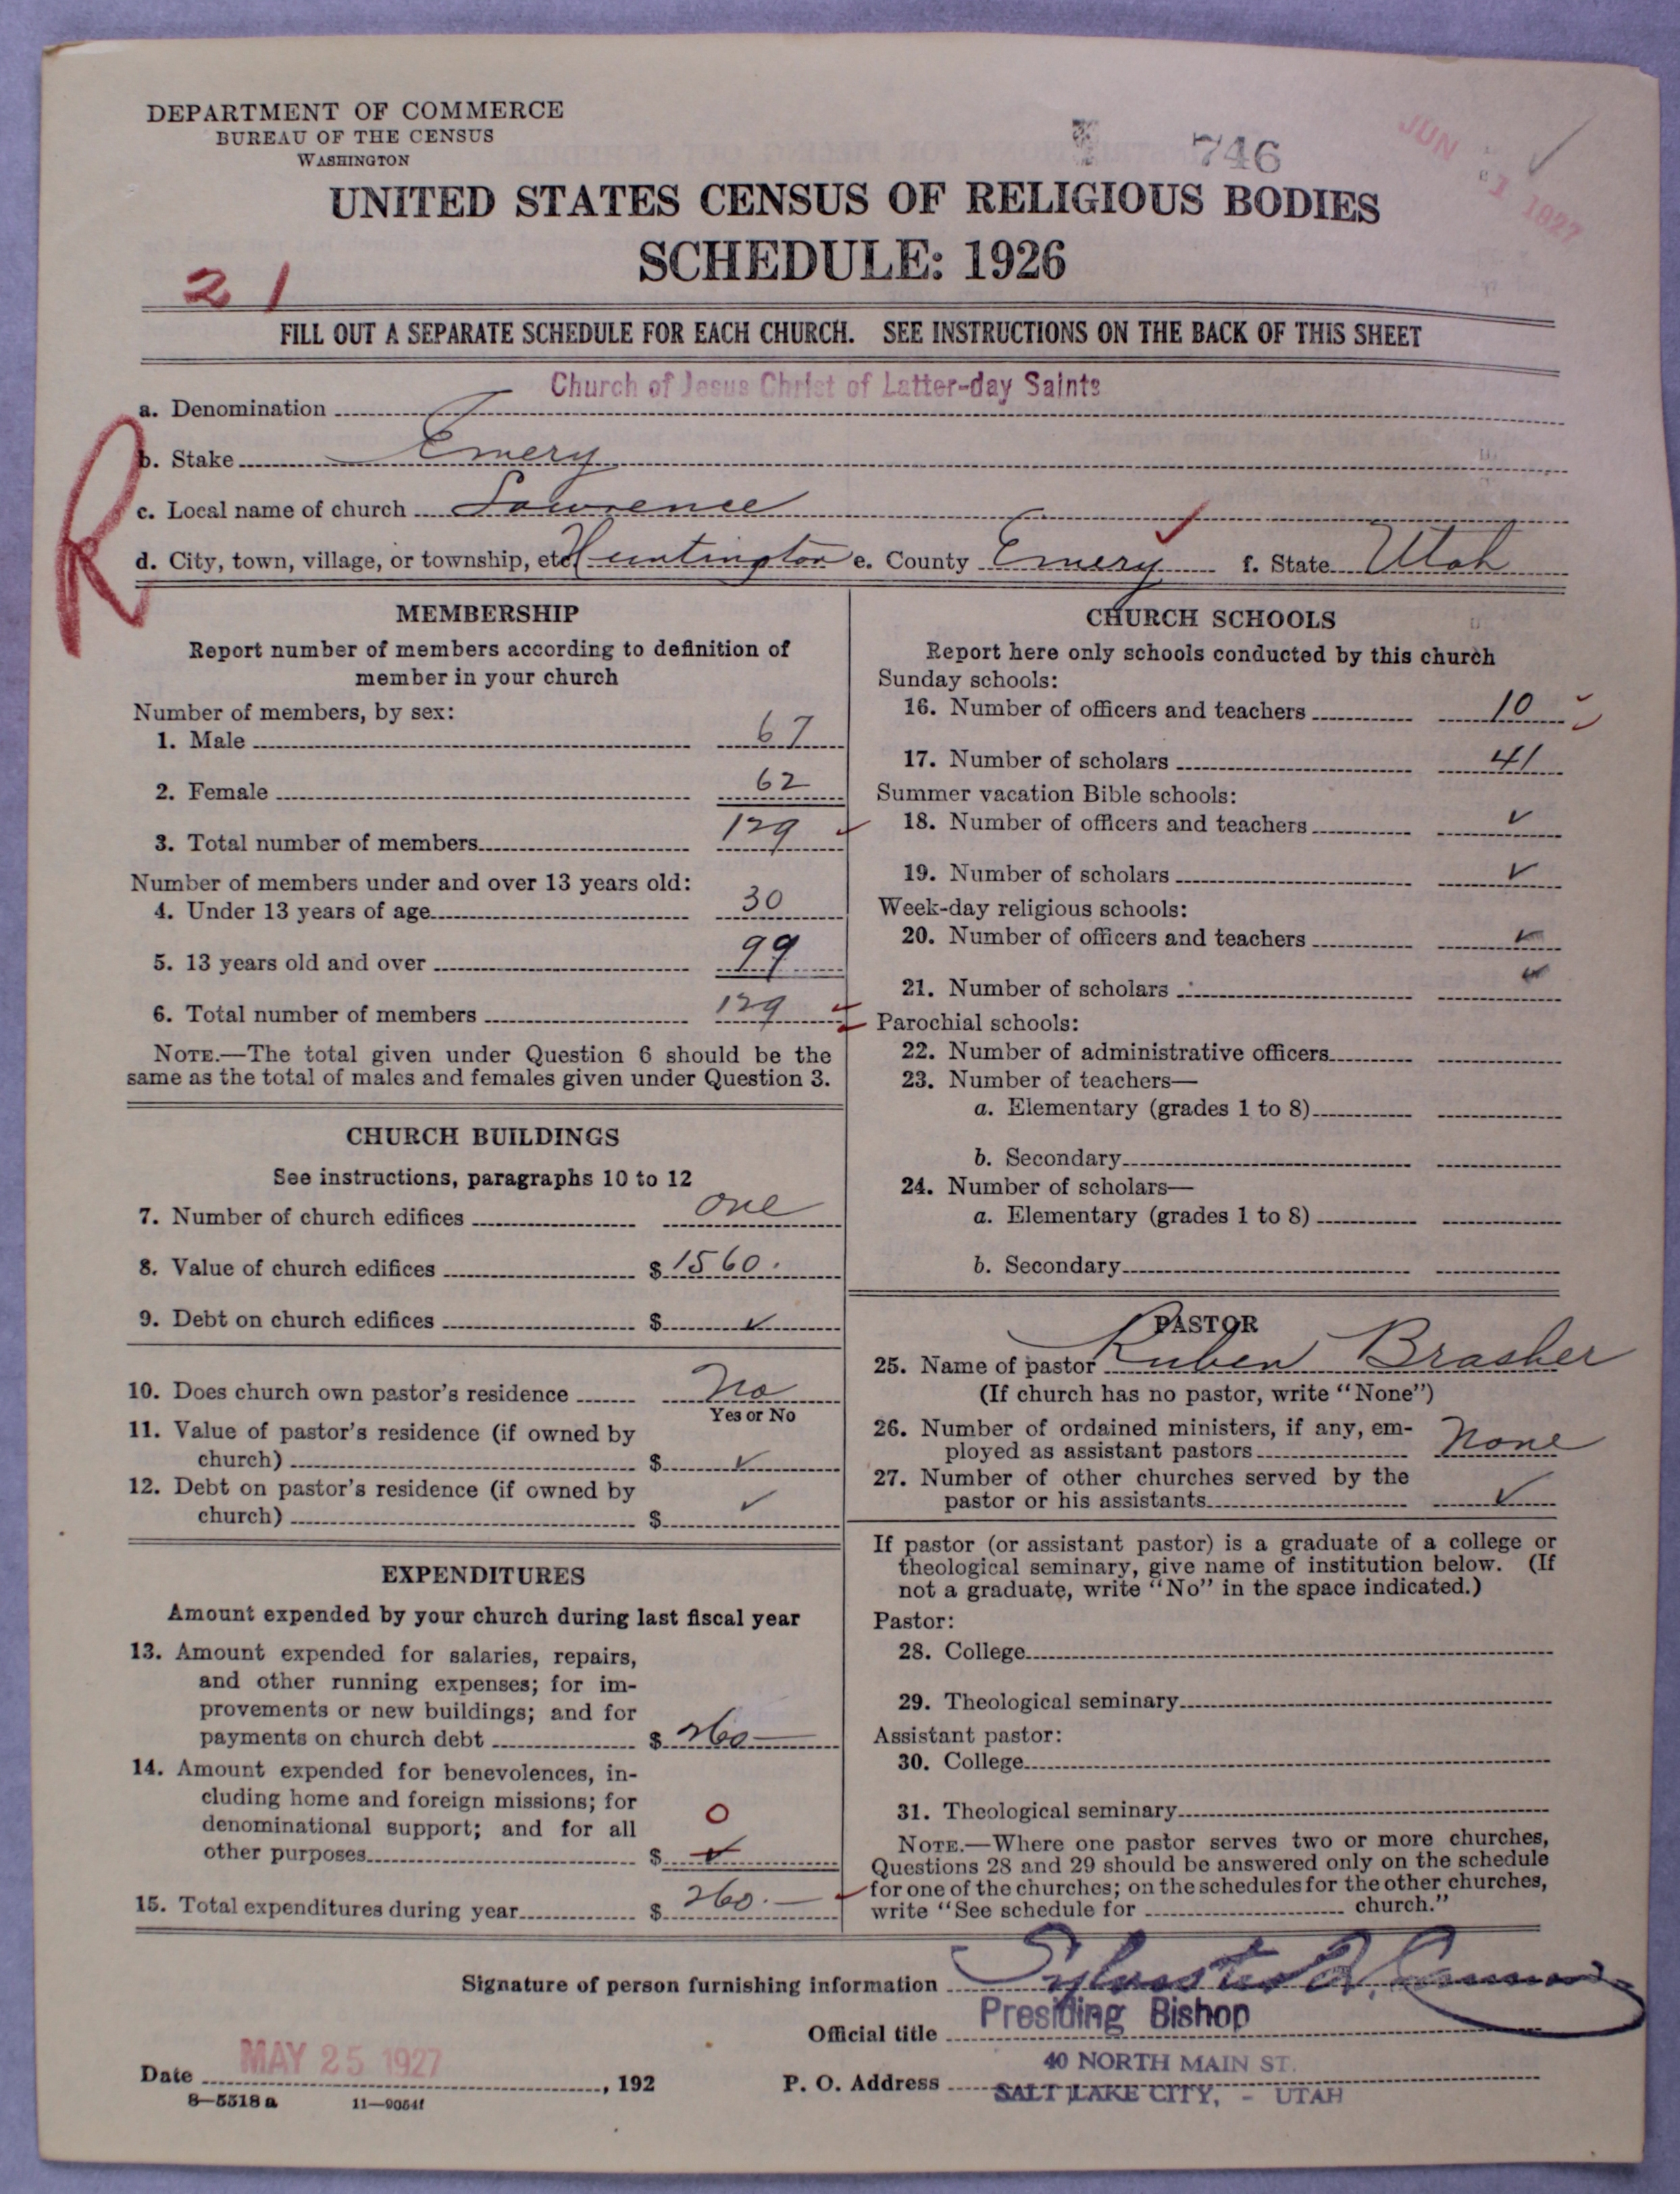 DEPARTMENT OF COMMERCE
BUREAU OF THE CENSUS
WASHINGTON
746
JUN 1 1927
UNITED STATES CENSUS OF RELIGIOUS BODIES
SCHEDULE: 1926
21
FILL OUT A SEPARATE SCHEDULE FOR EACH CHURCH. SEE INSTRUCTIONS ON THE BACK OF THIS SHEET
a. Denomination Church of Jesus Christ of Latter-day Saints
R
b. Stake Emery
c. Local name of church Lawrence
d. City, town, village, or township, etc. Huntington e. County Emery f. State Utah
MEMBERSHIP
Report number of members according to definition of
member in your church
Number of members, by sex:
1. Male 67
2. Female 62
3. Total number of members 129
Number of members under and over 13 years old:
4. Under 13 years of age 30
5. 13 years old and over 99
6. Total number of members 129
NOTE.—The total given under Question 6 should be the
same as the total of males and females given under Question 3.
CHURCH BUILDINGS
See instructions, paragraphs 10 to 12
7. Number of church edifices one
8. Value of church edifices $ 1560.
9. Debt on church edifices $ ✓
10. Does church own pastor's residence No
Yes or No
11. Value of pastor's residence (if owned by
church) $ ✓
12. Debt on pastor's residence (if owned by
church) $ ✓
EXPENDITURES
Amount expended by your church during last fiscal year
13. Amount expended for salaries, repairs,
and other running expenses; for im-
provements or new buildings; and for
payments on church debt $ 260—
14. Amount expended for benevolences, in-
cluding home and foreign missions; for
denominational support; and for all 0
other purposes $ ✓
15. Total expenditures during year $ 260.—
CHURCH SCHOOLS
Report here only schools conducted by this church
Sunday schools:
16. Number of officers and teachers 10
17. Number of scholars 41
Summer vacation Bible schools:
18. Number of officers and teachers ✓
19. Number of scholars ✓
Week-day religious schools:
20. Number of officers and teachers ✓
21. Number of scholars ✓
Parochial schools:
22. Number of administrative officers
23. Number of teachers—
a. Elementary (grades 1 to 8)
b. Secondary
24. Number of scholars—
a. Elementary (grades 1 to 8)
b. Secondary
PASTOR
25. Name of pastor Ruben Brasher
(If church has no pastor, write "None")
26. Number of ordained ministers, if any, em-
ployed as assistant pastors None
27. Number of other churches served by the
pastor or his assistants ✓
If pastor (or assistant pastor) is a graduate of a college or
theological seminary, give name of institution below. (If
not a graduate, write "No" in the space indicated.)
Pastor:
28. College
29. Theological seminary
Assistant pastor:
30. College
31. Theological seminary
NOTE.—Where one pastor serves two or more churches,
Questions 28 and 29 should be answered only on the schedule
for one of the churches; on the schedules for the other churches,
write "See schedule for church."
Signature of person furnishing information Sylvester Q. Cannon
Official title Presiding Bishop
Date MAY 25 1927, 192
P. O. Address 40 NORTH MAIN ST.
SALT LAKE CITY, - UTAH
8—5518 a 11—9054f